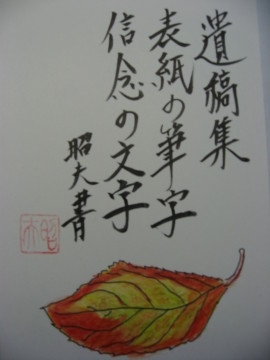 遺稿集
表紙の筆字
信念の文字
昭夫書